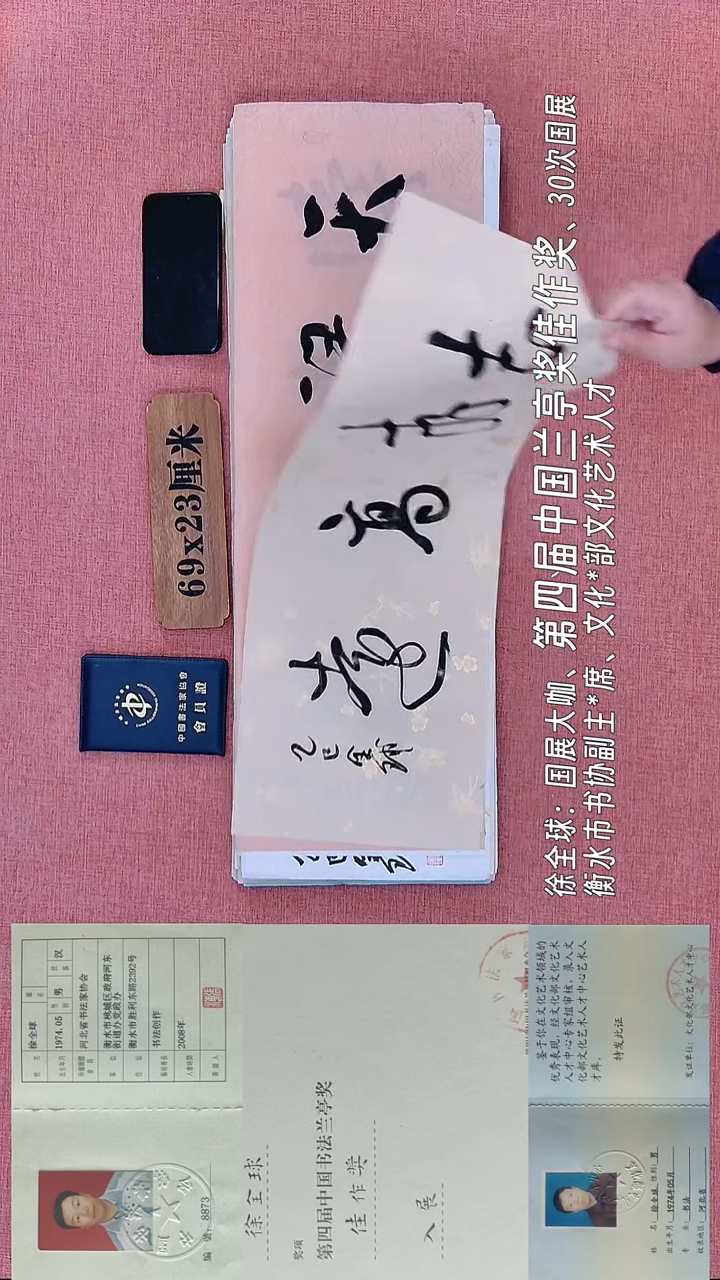 徐全球：国展大咖、第四届中国兰亭奖佳作奖、30次国展
衡水市书协副主*席、文化*部文化艺术人才
69x23厘米
中國書法家協會
會員證
志
高
遠
乙巳全球
姓名 徐全球
出生年月 1974.05 性别 男 民族 汉
河北省书法家协会
衡水市桃城区政府河东
街道办党政办
衡水市胜利东路2392号
书法创作
2008年
编号: 8873
徐全球
奖项
第四届中国书法兰亭奖
佳作奖
入展
鉴于你在文化艺术领域的
优秀表现，经文化部文化艺术
人才中心专家组审核，录入文
化部文化艺术人才中心艺术人
才库。
特发此证
发证单位：文化部文化艺术人才中心
姓名：徐全球 性别：男
出生年月：1974年05月
专业：书法
收录地区：河北省